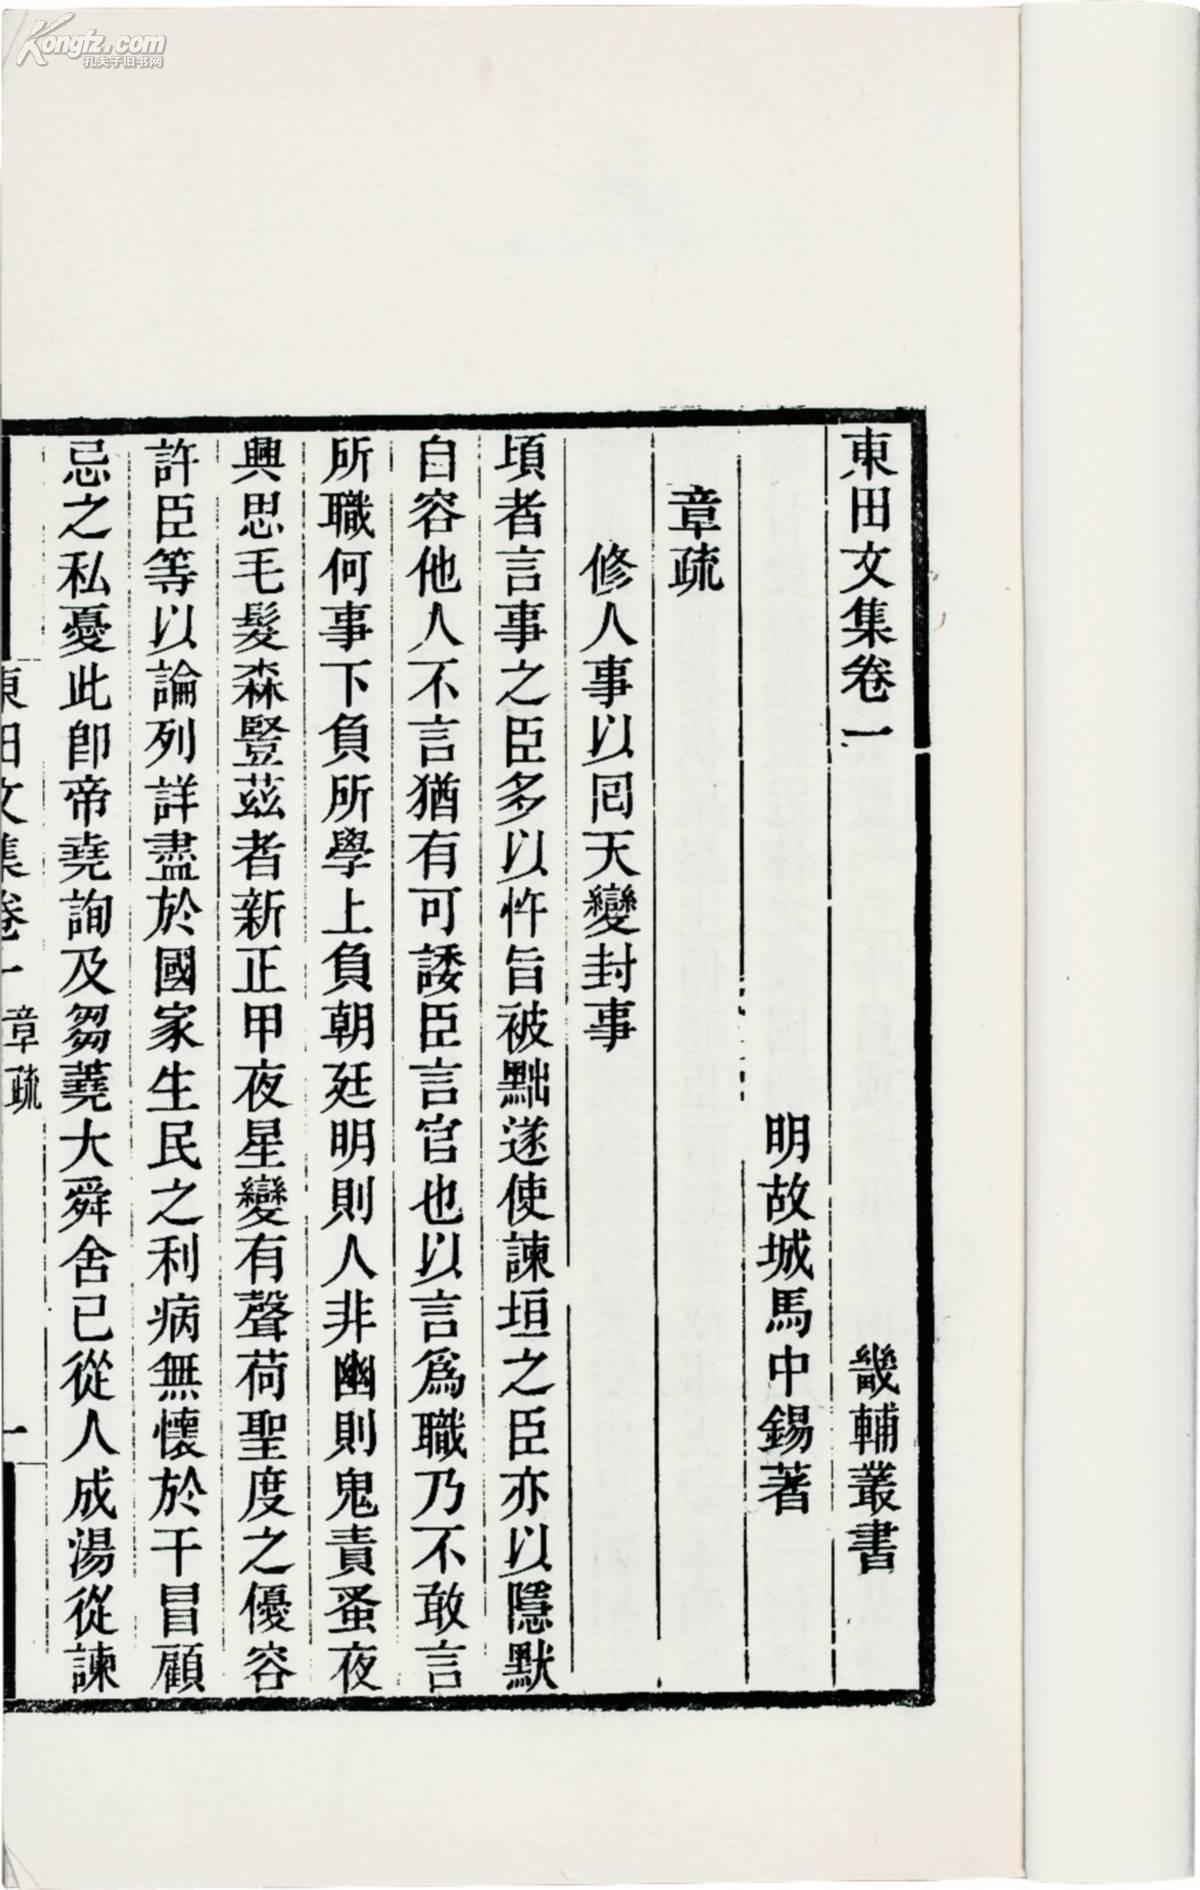 Kongfz.com
孔夫子旧书网
東田文集卷一 畿輔叢書
明故城馬中錫著
章疏
修人事以囘天變封事
頃者言事之臣多以忤旨被黜遂使諫垣之臣亦以隱默
自容他人不言猶有可諉臣言官也以言爲職乃不敢言
所職何事下負所學上負朝廷明則人非幽則鬼責蚤夜
興思毛髮森豎茲者新正甲夜星變有聲荷聖度之優容
許臣等以論列詳盡於國家生民之利病無懷於干冒顧
忌之私憂此卽帝堯詢及芻蕘大舜舍已從人成湯從諫
東田文集卷一 章疏 一